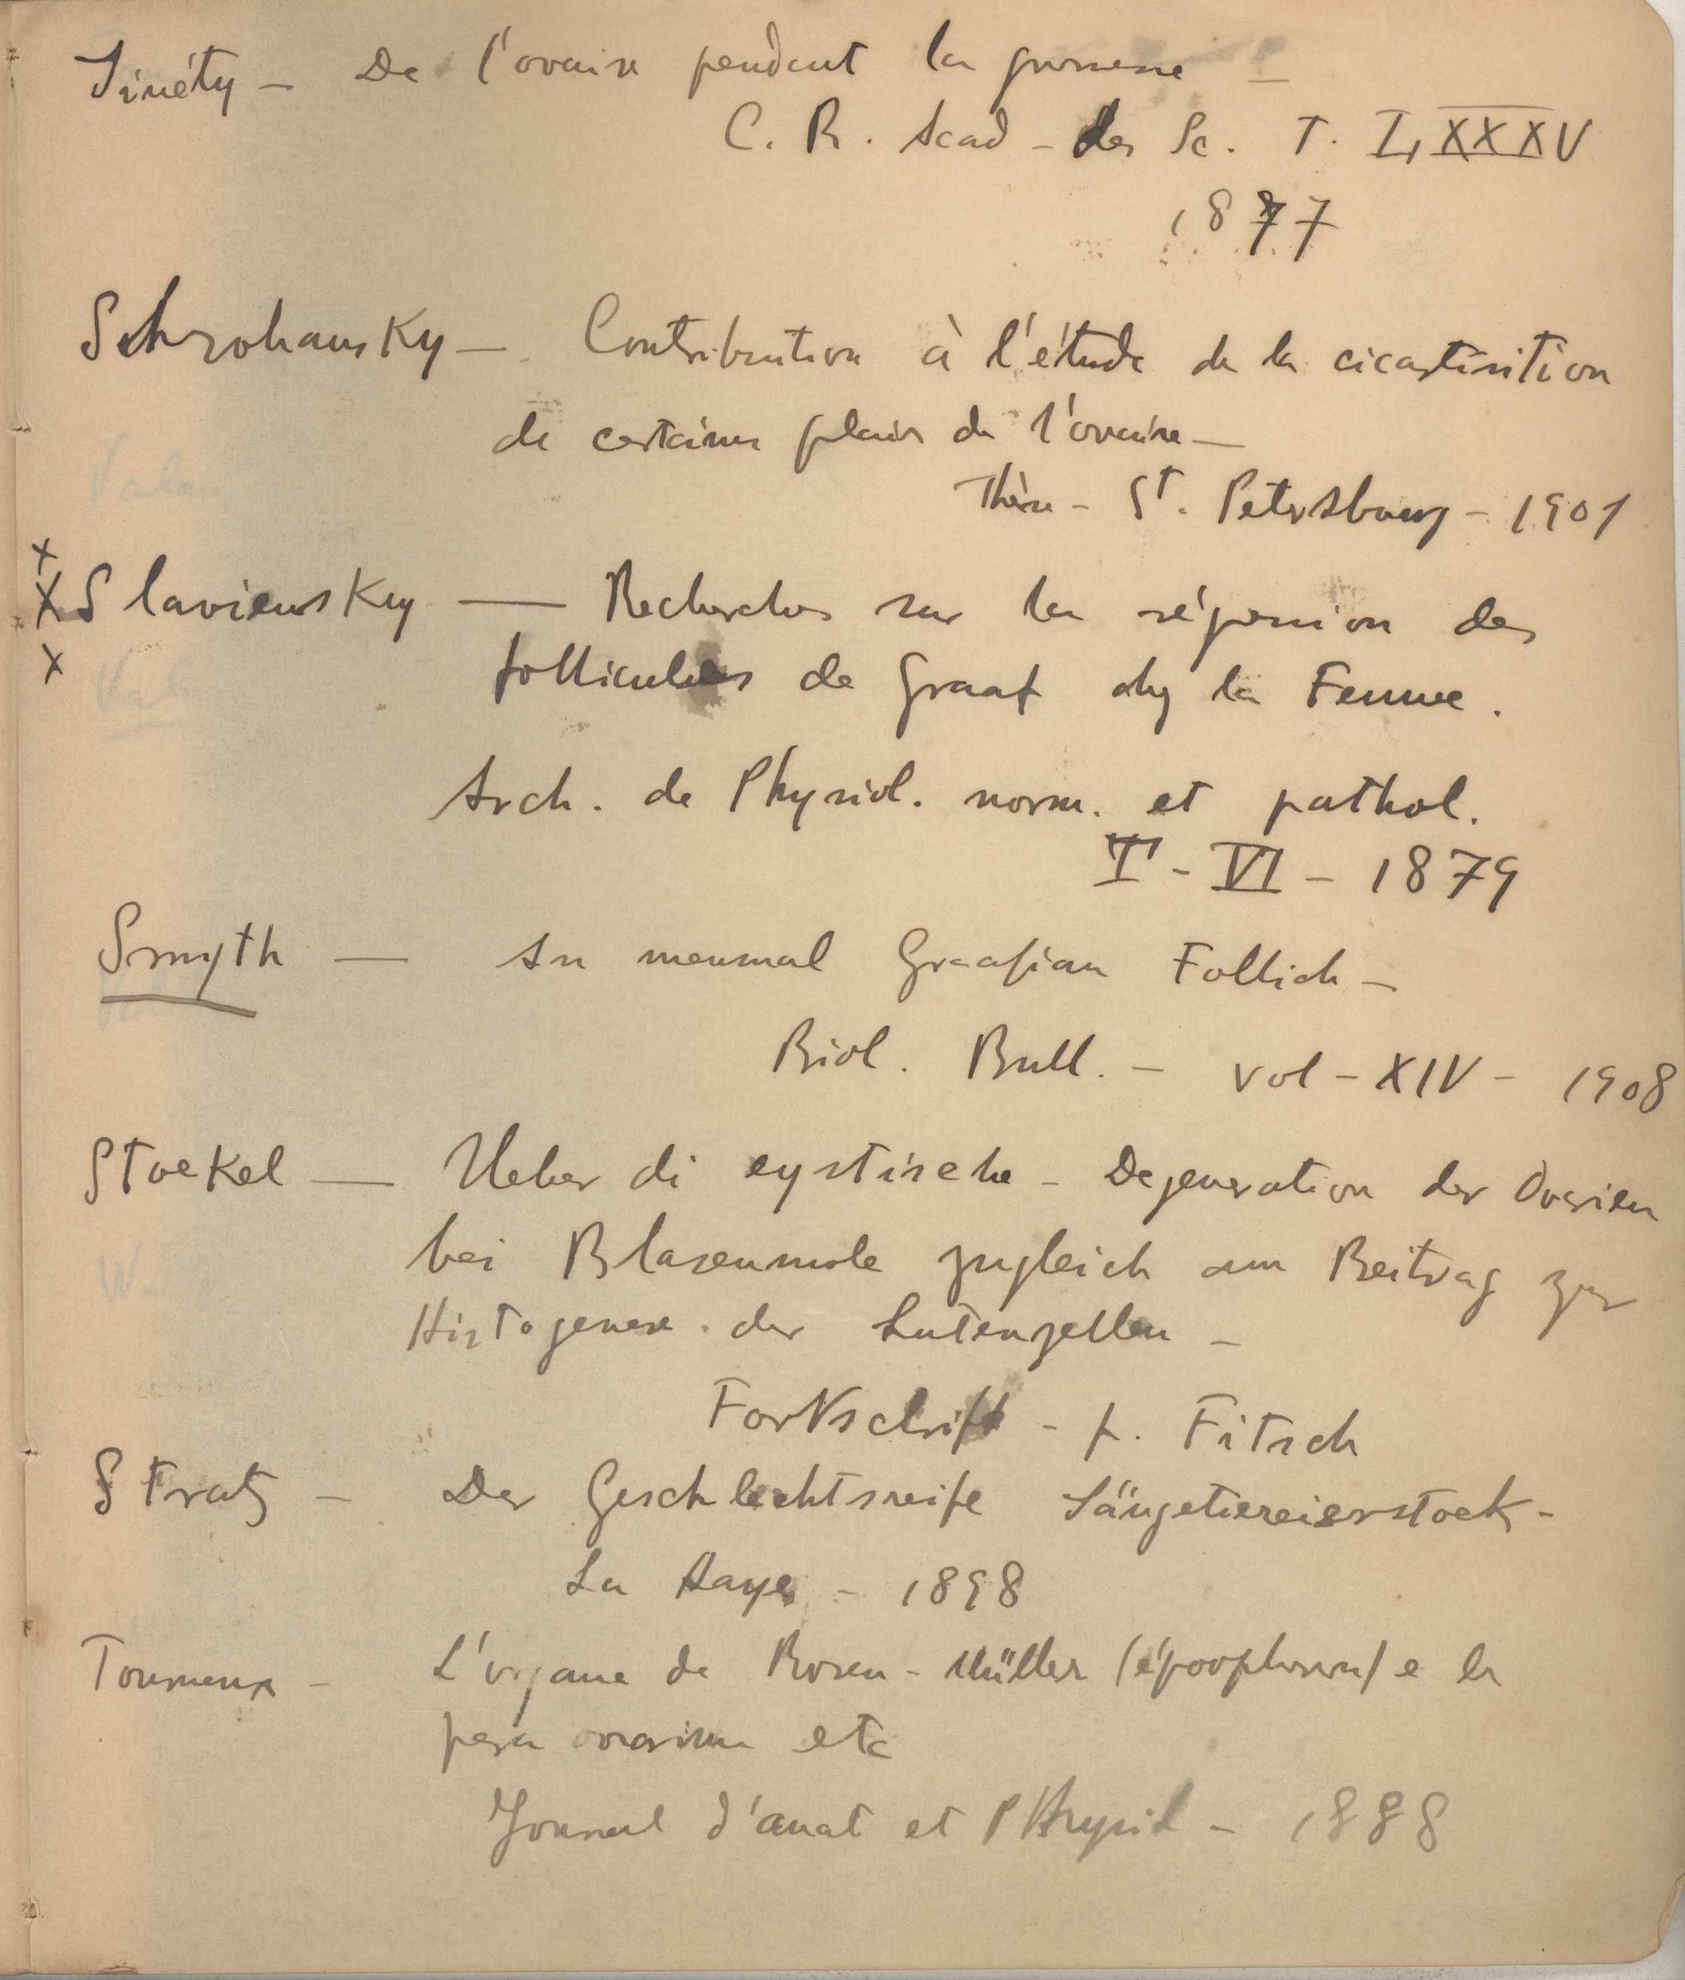 Sinéty — De l'ovaire pendant la grossesse —
C. R. Acad - des Sc. T. LXXXV
1877
Schrohansky — Contribution à l'étude de la cicatrisation
de certaines plaies de l'ovaire —
Thèse - St. Petersbourg - 1901
Slaviensky — Recherches sur la régression des
follicules de Graaf chez la Femme.
Arch. de Physiol. norm. et pathol.
T - VI - 1879
Smyth — An Graafian Follicle —
Biol. Bull. - vol - XIV - 1908
Stoekel — Ueber di cystische - Degeneration der Ovarien
bei Blasenmole zugleich am Beitrag zur
Histogenese der Luteinzellen —
Fortschrift - f. Fitsch
Stratz - Der Geschlechtsreife Säugetiereierstock -
La Haye - 1898
Tourneux - L'organe de Rosen-Müller (époophoron) e le
para ovarium etc
Journal d'anat et Physiol - 1888